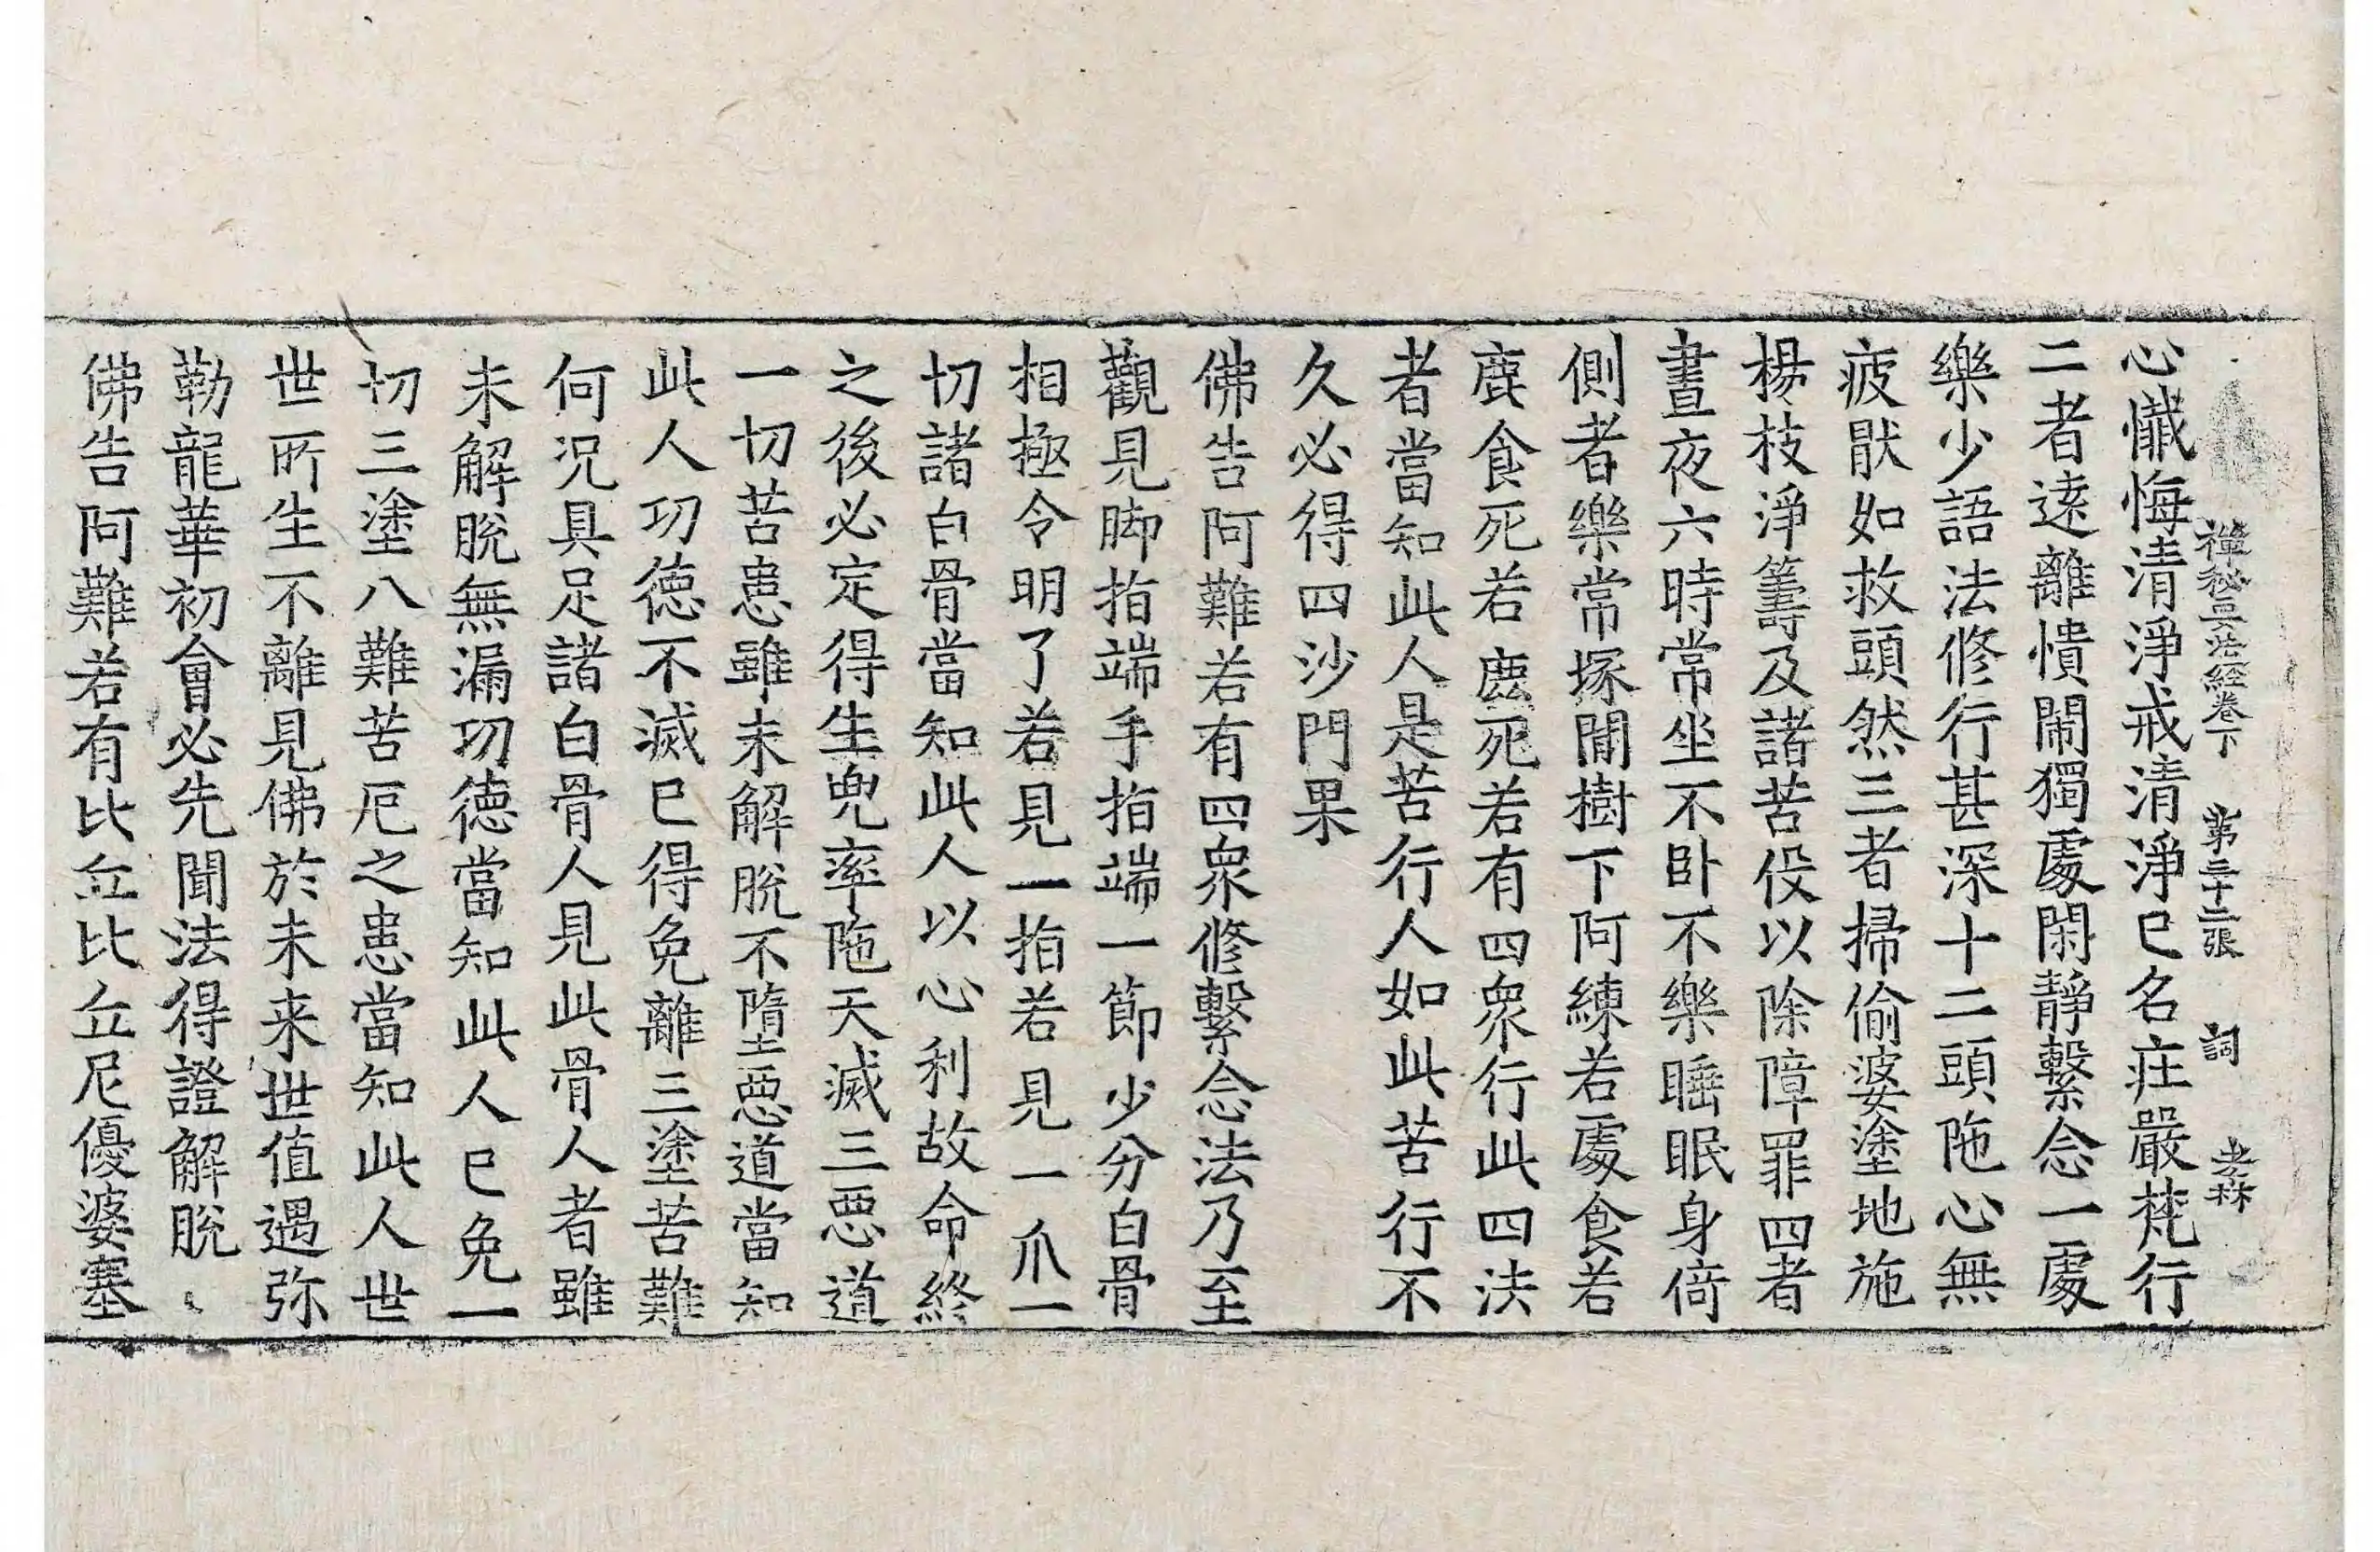 禪秘要法經卷下 第三十二張 詞
心懺悔清淨戒清淨已名庄嚴梵行
二者遠離憒閙獨處閑靜繫念一處
樂少語法修行甚深十二頭陁心無
疲猒如救頭然三者掃偷婆塗地施
楊枝淨籌及諸苦役以除障罪四者
晝夜六時常坐不卧不樂睡眠身倚
側者樂常塚間樹下阿練若處食若
鹿食死若鹿死若有四衆行此四法
者當知此人是苦行人如此苦行不
久必得四沙門果
佛告阿難若有四衆修繫念法乃至
觀見脚指端手指端一節少分白骨
相極令明了若見一指若見一爪一
切諸白骨當知此人以心利故命終
之後必定得生兜率陁天滅三惡道
一切苦患雖未解脫不墮惡道當知
此人功德不滅已得免離三塗苦難
何況具足諸白骨人見此骨人者雖
未解脫無漏功德當知此人已免一
切三塗八難苦厄之患當知此人世
世所生不離見佛於未来世值遇弥
勒龍華初會必先聞法得證解脫
佛告阿難若有比丘比丘尼優婆塞